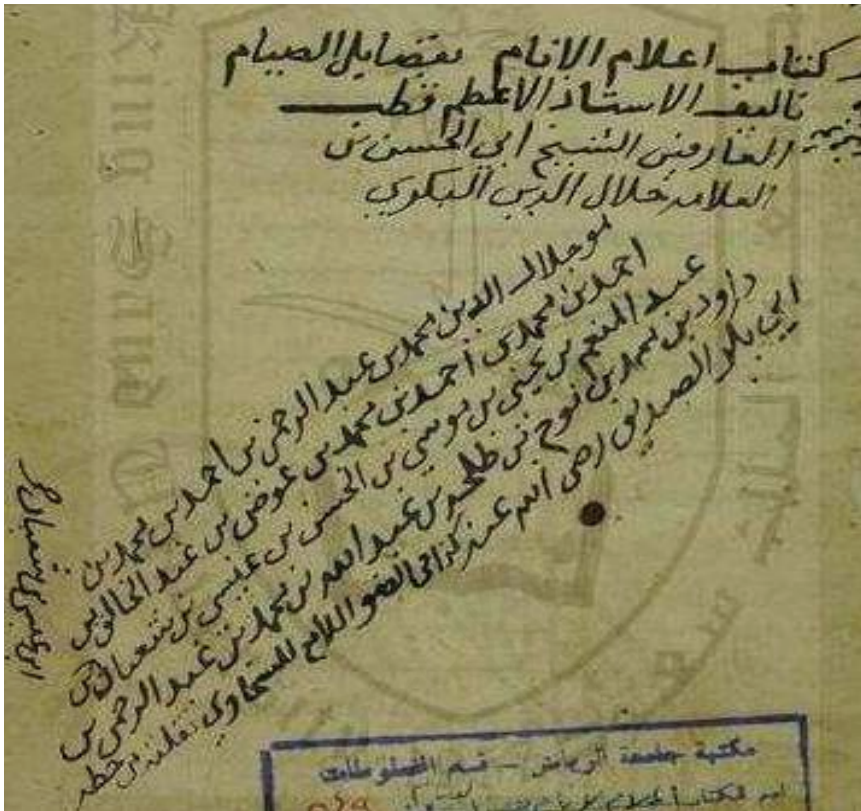 كتاب اعلام الانام بفضايل الصيام
تاليف الاستاذ الاعظم قطب
العارفين الشيخ ابي الحسن بن
العلامه جلال الدين البكري
هو جلال الدين محمد بن عبد الرحمن بن احمد بن محمد بن
احمد بن محمد بن احمد بن محمد بن عوض بن عبد الخالق بن
عبد المنعم بن يحيى بن موسى بن الحسن بن عيسى بن شعبان بن
داود بن محمد بن نوح بن طلحه بن عبد الله بن محمد بن عبد الرحمن بن
ابي بكر الصديق رضي الله عنه كذا في الضوء اللامع للسخاوي نقلته من خطه
ابن عيسى بن شعبان
مكتبة جامعة الرياض - قسم المخطوطات
اسم الكتاب
King Saud